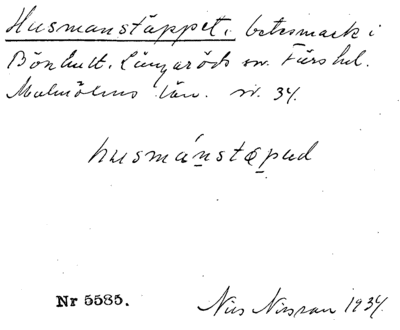 Husmanstäppet, betesmark i
Bönhult, Långaröds sn. Färs hd.
Malmöhus län. st. 34.
husmánstɑpəd
Nr 5585.
Nils Nilsson 1934